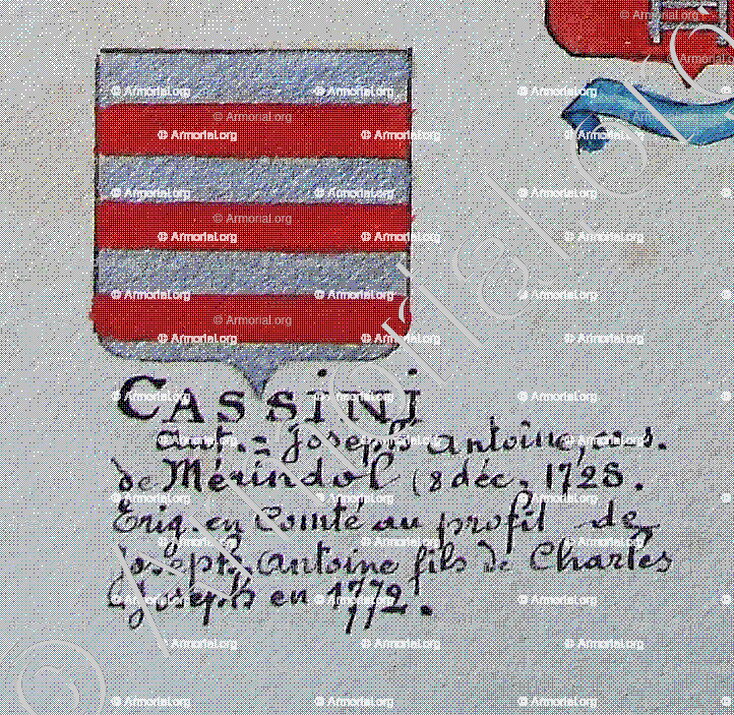 CASSINI
aut. = Joseph Antoine, cos.
de Mérindol (8 déc. 1728.
Erig. en Comté au profit de
Joseph, Antoine fils de Charles
Joseph en 1772.
© Armorial.org